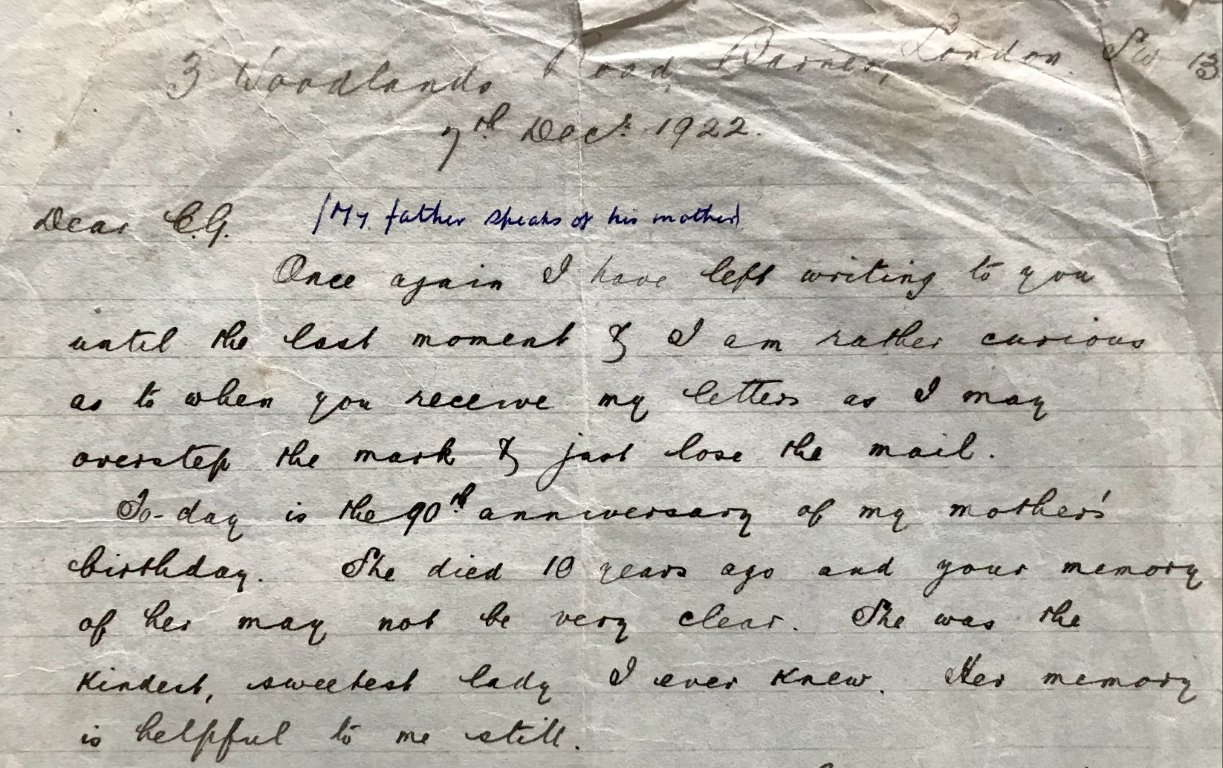 3 Woodlands Road, Barnes, London. SW 13
7th Decr. 1922.
Dear C.G. (My father speaks of his mother)
Once again I have left writing to you
until the last moment & I am rather curious
as to when you receive my letters as I may
overstep the mark & just lose the mail.
To-day is the 90th anniversary of my mother's
birthday. She died 10 years ago and your memory
of her may not be very clear. She was the
kindest, sweetest lady I ever knew. Her memory
is helpful to me still.